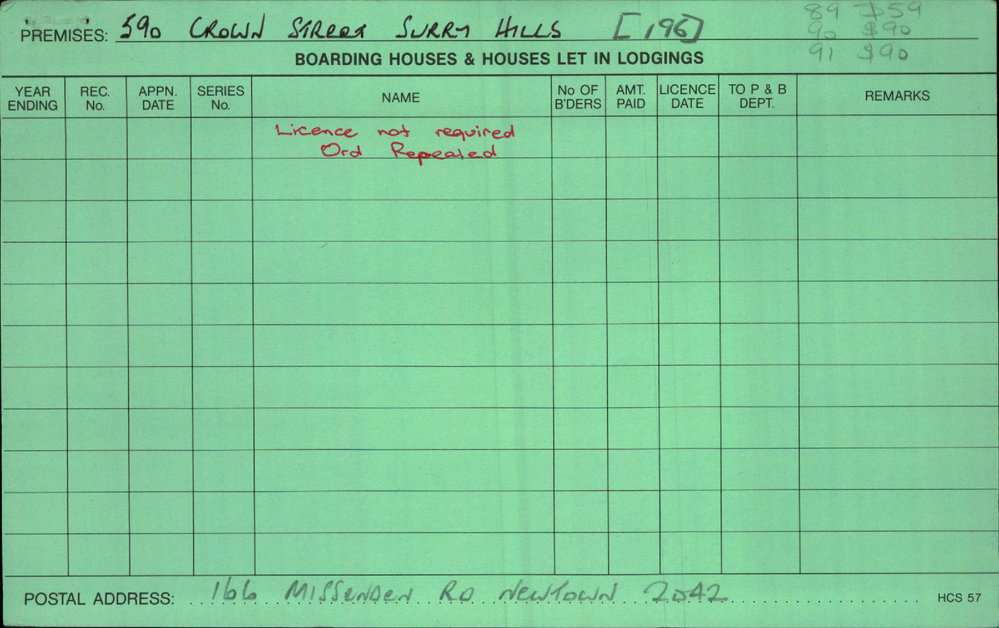 PREMISES: 590 CROWN STREET SURRY HILLS [196]
89 $59
90 $90
91 $90
BOARDING HOUSES & HOUSES LET IN LODGINGS
YEAR ENDING REC. No. APPN. DATE SERIES No. NAME No OF B'DERS AMT. PAID LICENCE DATE TO P & B DEPT. REMARKS
Licence not required
Ord Repealed
POSTAL ADDRESS: 166 MISSENDEN RD NEWTOWN 2042
HCS 57